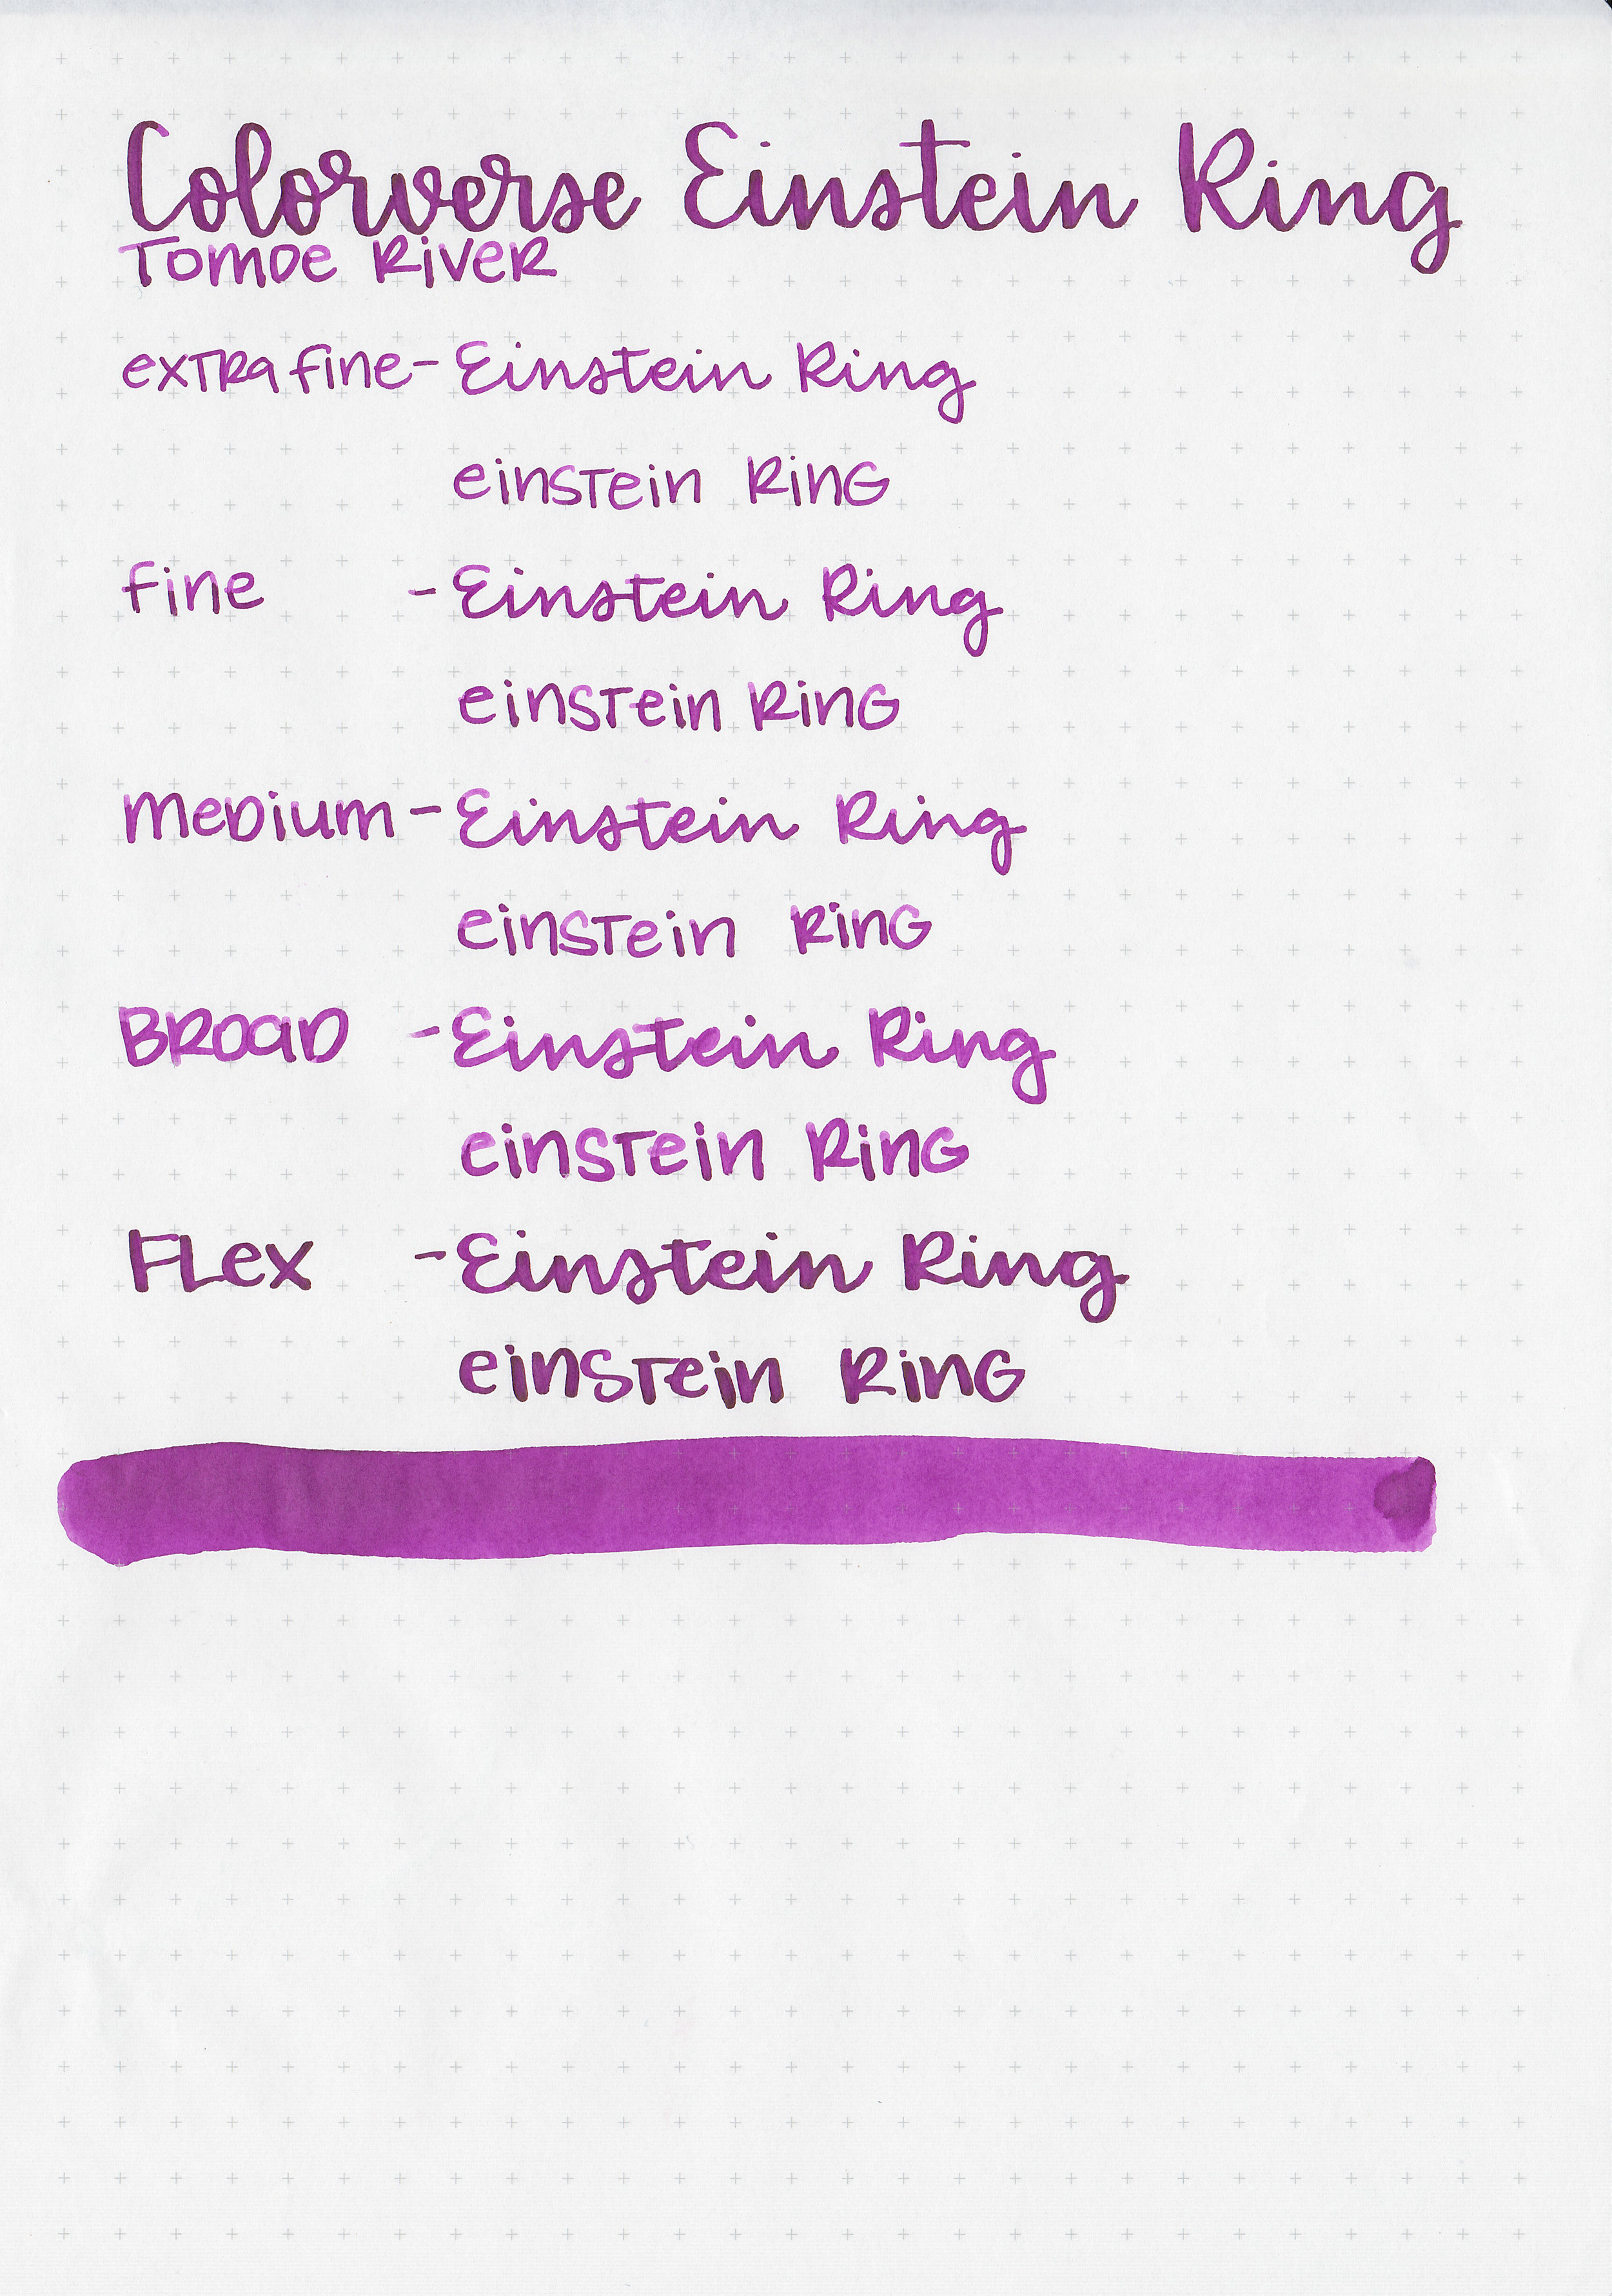 Colorverse Einstein Ring
Tomoe River
extra fine - Einstein Ring
einstein Ring
fine - Einstein Ring
einstein Ring
Medium - Einstein Ring
einstein Ring
Broad - Einstein Ring
einstein Ring
Flex - Einstein Ring
einstein Ring